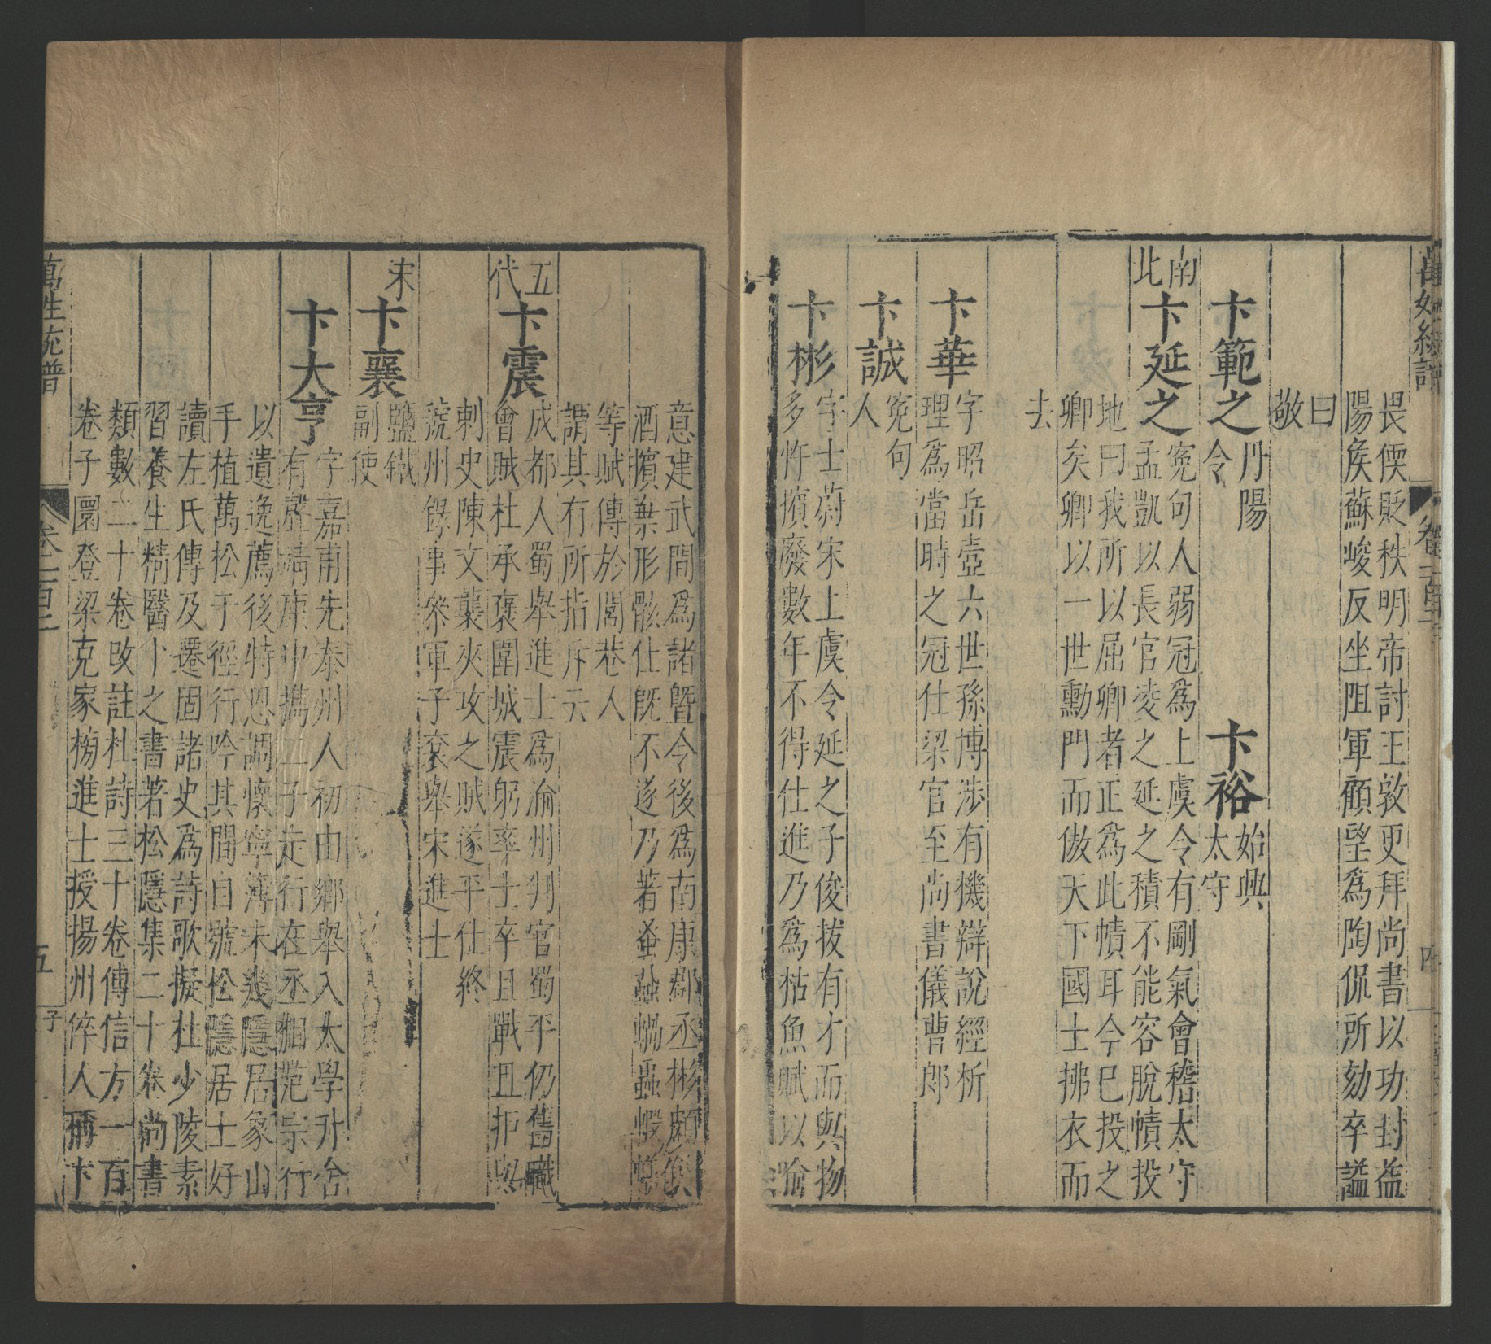 萬姓統譜
卷一百二
畏愞貶秩明帝討王敦更拜尚書以功封益
陽侯蘇峻反坐阻軍顧望為陶侃所劾卒謚
曰
敬
卞範之 丹陽
令
卞裕 始興
太守
南
北
卞延之 冤句人弱冠為上虞令有剛氣會稽太守
孟凱以長官凌之延之積不能容脫幘投
地曰我所以屈卿者正為此幘耳今已投之
卿矣卿以一世勳門而傲天下國士拂衣而
去
卞華 字昭岳壺六世孫博涉有機辯說經析
理為當時之冠仕梁官至尚書儀曹郎
卞誠 冤句
人
卞彬 字士蔚宋上虞令延之子俊拔有才而與物
多忤擯廢數年不得仕進乃為枯魚賦以喻
意建武間為諸暨令後為南康郡丞彬頗飲
酒擯棄形骸仕既不遂乃著蚤蝨蝸蟲蝦蟆
等賦傳於閭巷人
謂其有所指斥云
五
代
卞震 成都人蜀舉進士為渝州判官蜀平仍舊職
會賊杜承褒圍城震躬率士卒且戰且拒與
刺史陳文襲夾攻之賊遂平仕終
虢州錄事參軍子袞舉宋進士
宋
卞襄 鹽鐵
副使
卞大亨 字嘉甫先泰州人初由鄉舉入太學升舍
有聲靖康中攜五子走行在丞相范宗行
以遺逸薦後特恩調懷寧簿未幾隱居象山
手植萬松于徑行吟其間自號松隱居士好
讀左氏傳及遷固諸史為詩歌擬杜少陵素
習養生精醫卜之書著松隱集二十卷尚書
類數二十卷改註杜詩三十卷傳信方一百
卷子圜登梁克家榜進士授揚州倅人稱卞
萬姓統譜
卷一百二
五